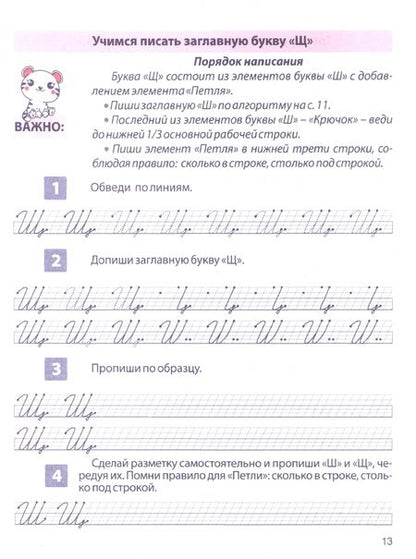 Учимся писать заглавную букву «Щ»
Порядок написания
Буква «Щ» состоит из элементов буквы «Ш» с добав-
лением элемента «Петля».
• Пиши заглавную «Ш» по алгоритму на с. 11.
• Последний из элементов буквы «Ш» – «Крючок» – веди
до нижней 1/3 основной рабочей строки.
• Пиши элемент «Петля» в нижней трети строки, со-
блюдая правило: сколько в строке, столько под строкой.
ВАЖНО:
1 Обведи по линиям.
Щ Щ Щ Щ Щ Щ Щ Щ
2 Допиши заглавную букву «Щ».
Щ Щ
Щ Щ Ш Ш Ш Ш Ш Ш
3 Пропиши по образцу.
Щ Щ
Щ Щ
4 Сделай разметку самостоятельно и пропиши «Ш» и «Щ», че-
редуя их. Помни правило для «Петли»: сколько в строке, столь-
ко под строкой.
Ш Щ
13